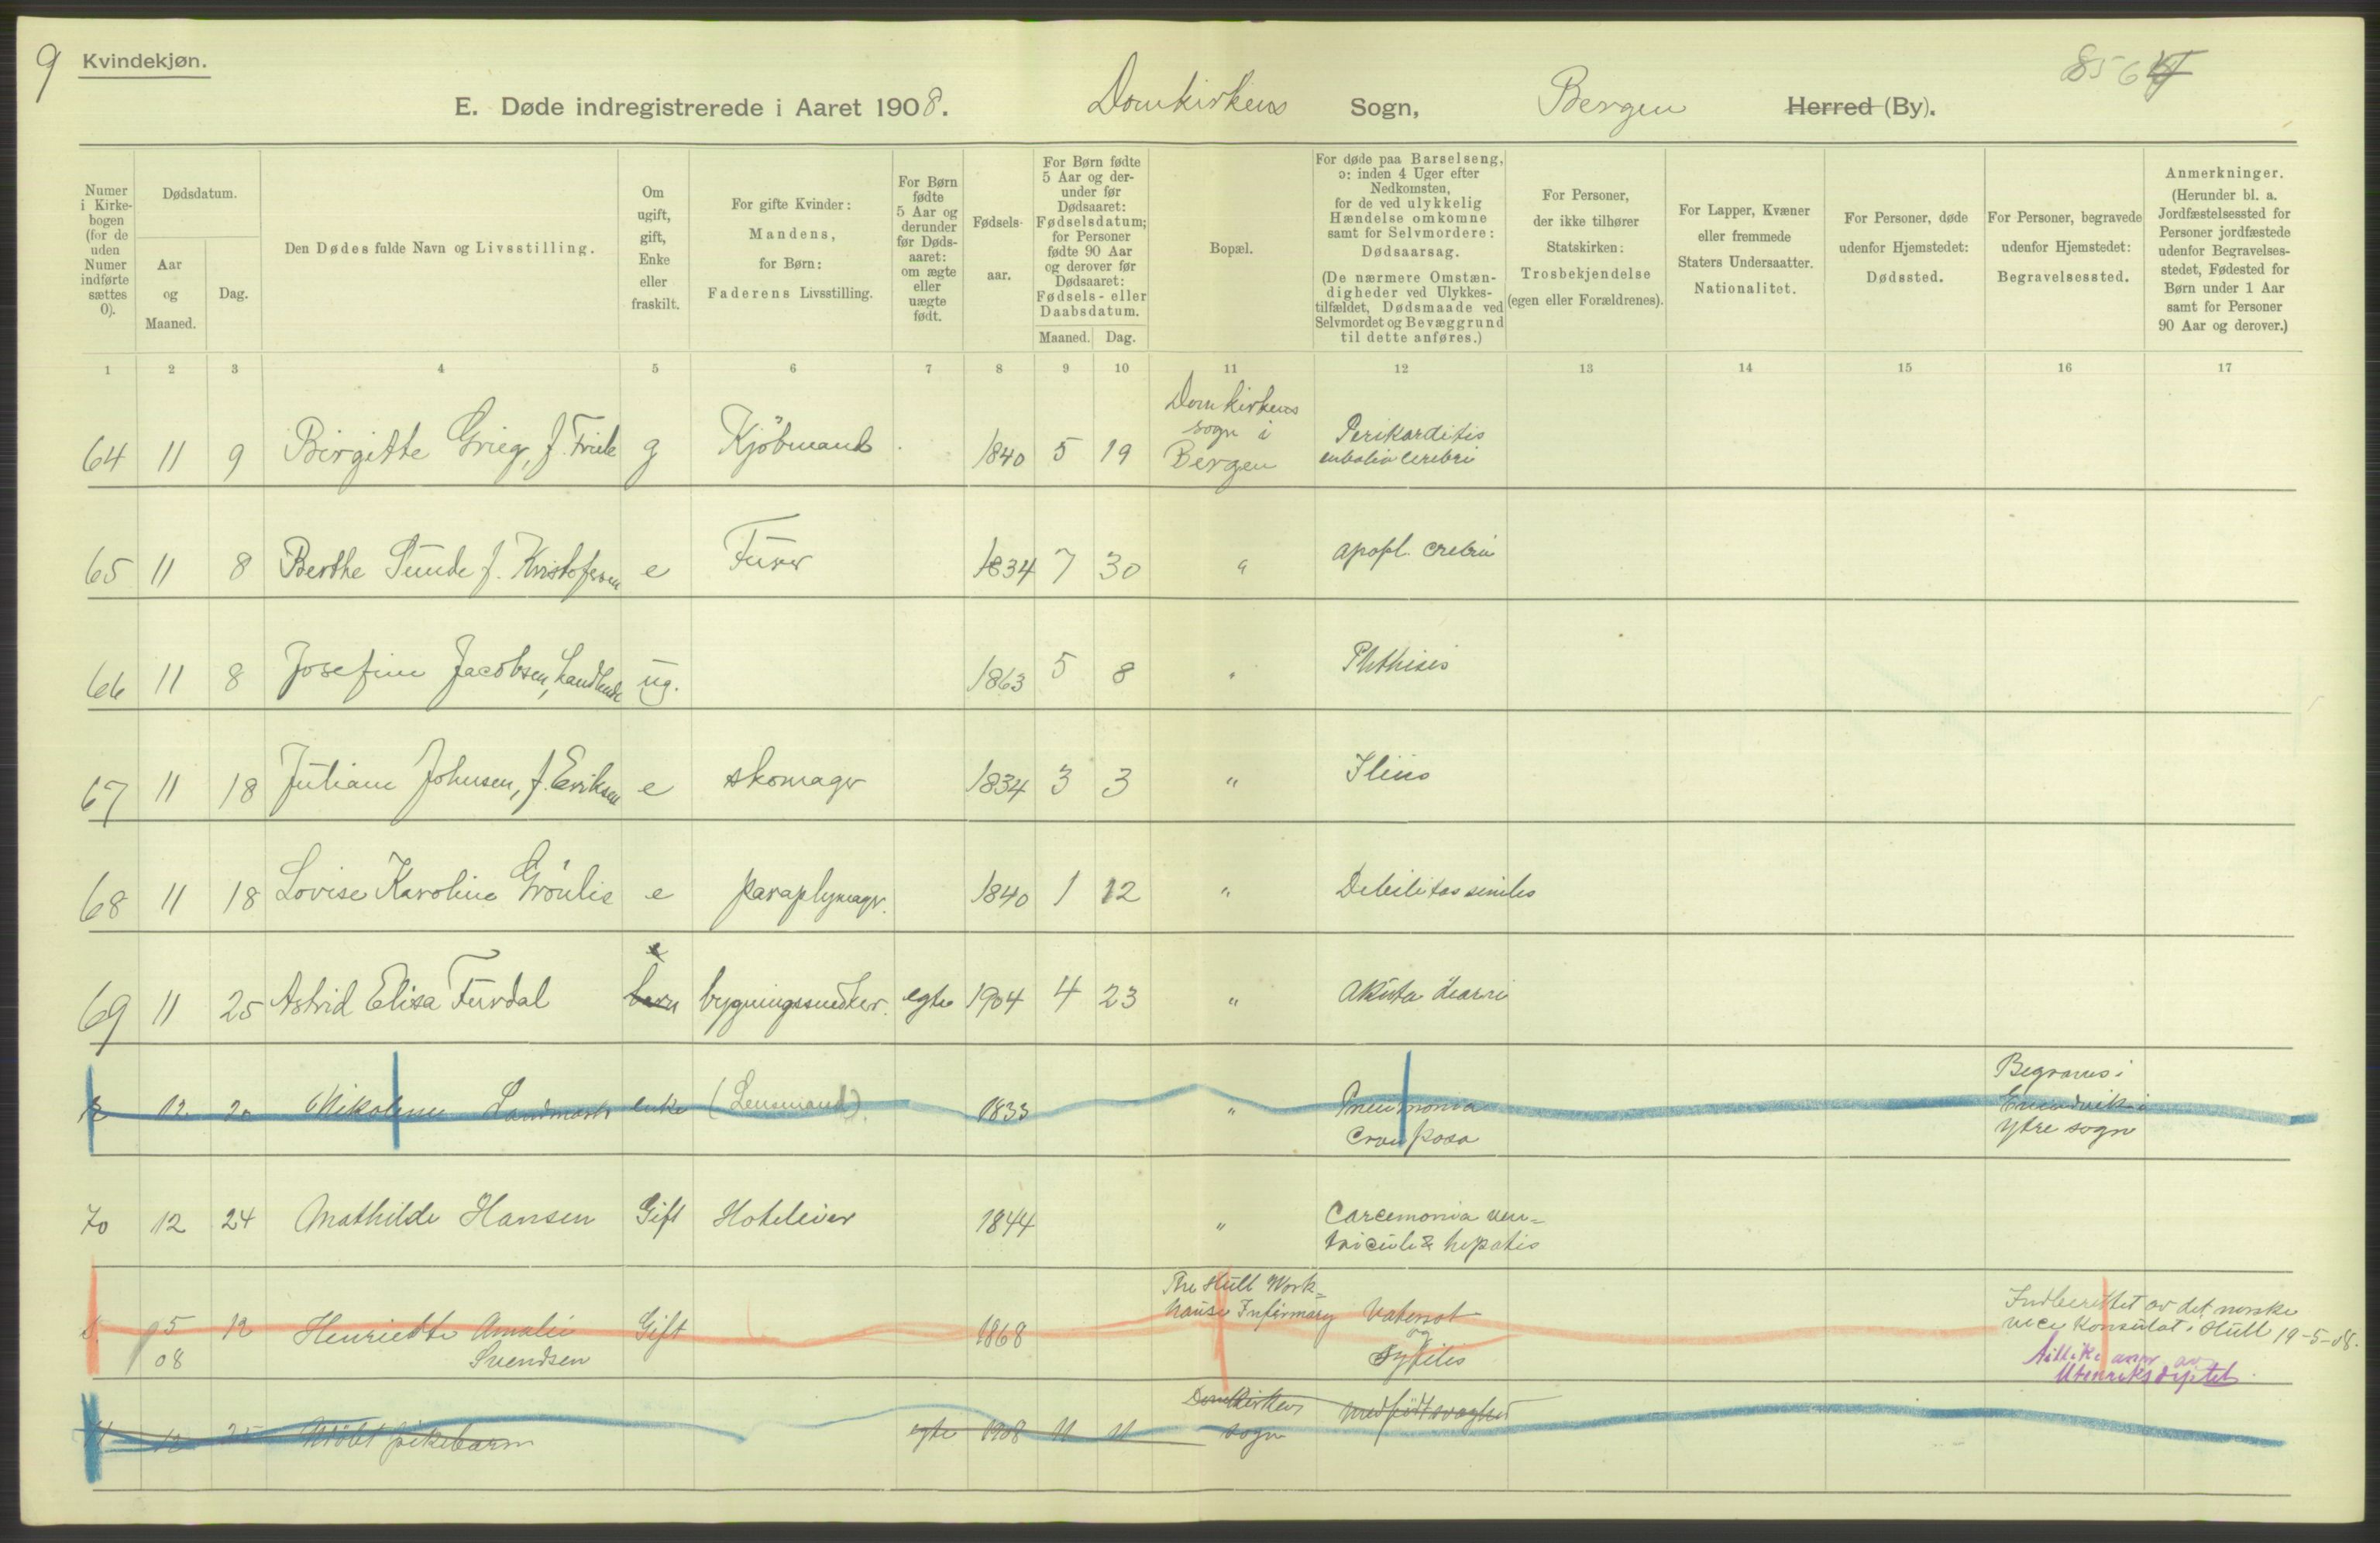 9 Kvindekjøn. 856
E. Døde indregistrerede i Aaret 1908. Domkirkens Sogn, Bergen Herred (By).
Numer i Kirke-bogen (for de uden Numer indførte sættes 0).
Dødsdatum.
Aar og Maaned.
Dag.
Den Dødes fulde Navn og Livsstilling.
Om ugift, gift, Enke eller fraskilt.
For gifte Kvinder: Mandens, for Børn: Faderens Livsstilling.
For Børn fødte 5 Aar og derunder før Døds-aaret: om ægte eller uægte født.
Fødsels-aar.
For Børn fødte 5 Aar og der-under før Dødsaaret: Fødselsdatum; for Personer fødte 90 Aar og derover før Dødsaaret: Fødsels- eller Daabsdatum.
Maaned. Dag.
Bopæl.
For døde paa Barselseng, ɔ: inden 4 Uger efter Nedkomsten, for de ved ulykkelig Hændelse omkomne samt for Selvmordere: Dødsaarsag.
(De nærmere Omstæn-digheder ved Ulykkes-tilfældet, Dødsmaade ved Selvmordet og Bevæggrund til dette anføres.)
For Personer, der ikke tilhører Statskirken: Trosbekjendelse (egen eller Forældrenes).
For Lapper, Kvæner eller fremmede Staters Undersaatter. Nationalitet.
For Personer, døde udenfor Hjemstedet: Dødssted.
For Personer, begravede udenfor Hjemstedet: Begravelsessted.
Anmerkninger.
(Herunder bl. a. Jordfæstelsessted for Personer jordfæstede udenfor Begravelses-stedet, Fødested for Børn under 1 Aar samt for Personer 90 Aar og derover.)
1 2 3 4 5 6 7 8 9 10 11 12 13 14 15 16 17
64 11 9 Birgitte Grieg, f. Friele g Kjöbmand 1840 5 19 Domkirkens sogn i Bergen Perikarditis embolia cerebri
65 11 8 Berthe Sunde f. Kristofersen e Furer 1834 7 30 " apopl. crebri
66 11 8 Josefine Jacobsen, ug. 1863 5 8 " Phthisis
67 11 18 Juliane Johnsen, f. Eriksen e skomager 1834 3 3 " Ilius
68 11 18 Lovise Karoline Grönlie e paraplymagr. 1840 1 12 " Debilitas seniles
69 11 25 Astrid Elisa Furdal e barn bygningssnedker. egte 1904 4 23 " Akuta
12 20 Nikoline Landmark enke (Lensmand) 1833 " Pneumonia Crouposa Begraves i Eivindvik i ytre sogn
70 12 24 Mathilde Hansen Gift Hoteleier 1844 " Carcemonia ven=triculi & hepatis
5 08 12 Henriette Amalie Svendsen Gift 1868 The Hull Work=house Infirmary Vatersot og Syfilis Indberettet av det norske vice konsulat i Hull 19-5-08.
Utenriksdeptet.
12 25 Udöbt pikebarn egte 1908 11 11 Domkirkens sogn medfödt svaghed